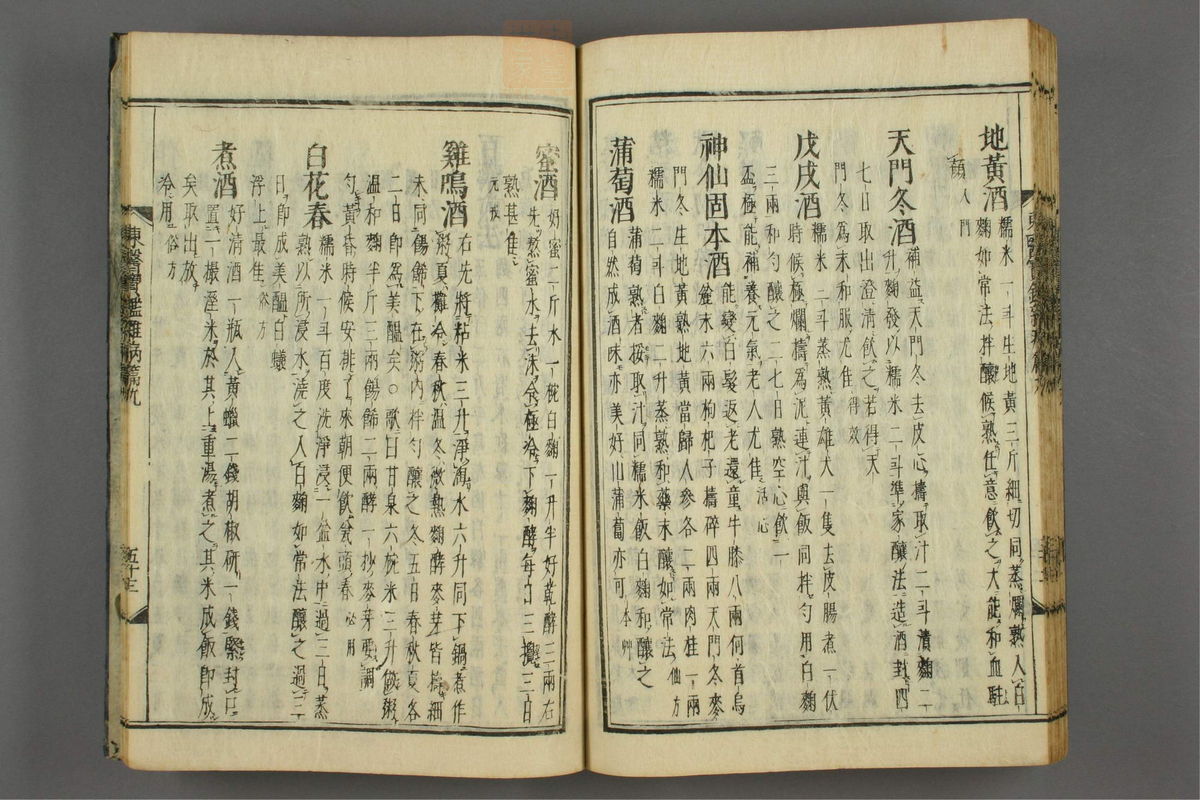 地黃酒 糯米一斗生地黃三斤細切同蒸爛熟入白
麴如常法拌釀候熟任意飮之大能和血駐
顏入門
天門冬酒 補益天門冬去皮心擣取汁二斗漬麴二
升麴發以糯米二斗準家釀法造酒封四
七日取出澄淸飮之若得天
門冬爲末和服尤佳得效
戊戌酒 糯米二斗蒸熟黃雄犬一隻去皮腸煮一伏
時候極爛擣爲泥連汁與飯同拌勻用白麴
三兩和勻釀之二七日熟空心飮一
盃極能補養元氣老人尤佳活心
神仙固本酒 能變白髮返老還童牛膝八兩何首烏
六兩枸杞子擣碎四兩天門冬麥
門冬生地黃熟地黃當歸人參各二兩肉桂一兩
糯米二斗白麴二升蒸熟和藥末釀如常法仙方
蒲萄酒 蒲萄熟者挼取汁同糯米飯白麴和釀之
自然成酒味亦美好山蒲萄亦可本艸
蜜酒 好蜜二斤水一椀白麴一升半好乾酵三兩右
先熬蜜水去沫令極冷下麴酵每日三攪三日
熟甚佳
元戎
雞鳴酒 右先將粘米三升淨淘水六升同下鍋煮作
粥夏攤冷春秋溫冬微熱麴酵麥芽皆擣細
末同餳餙下在粥內拌勻釀之冬五日春秋夏各
二日卽爲美醞矣○歌曰甘泉六椀米三升做粥
溫和麴半斤三兩餳餙二兩酵一抄麥芽要調
勻黃昏時候安排了來朝便飮瓮頭春必用
白花春 糯米一斗百度洗淨浸一盆水中過三日蒸
熟以所浸水澆之入白麴如常法釀之過三
日卽成美醞白蟻
浮上最佳俗方
煮酒 好淸酒一瓶入黃蠟二錢胡椒硏一錢緊封口
置一撮溼米於其上重湯煮之其米成飯卽成
矣取出放
冷用俗方
東醫寶鑑雜病篇九
五十三